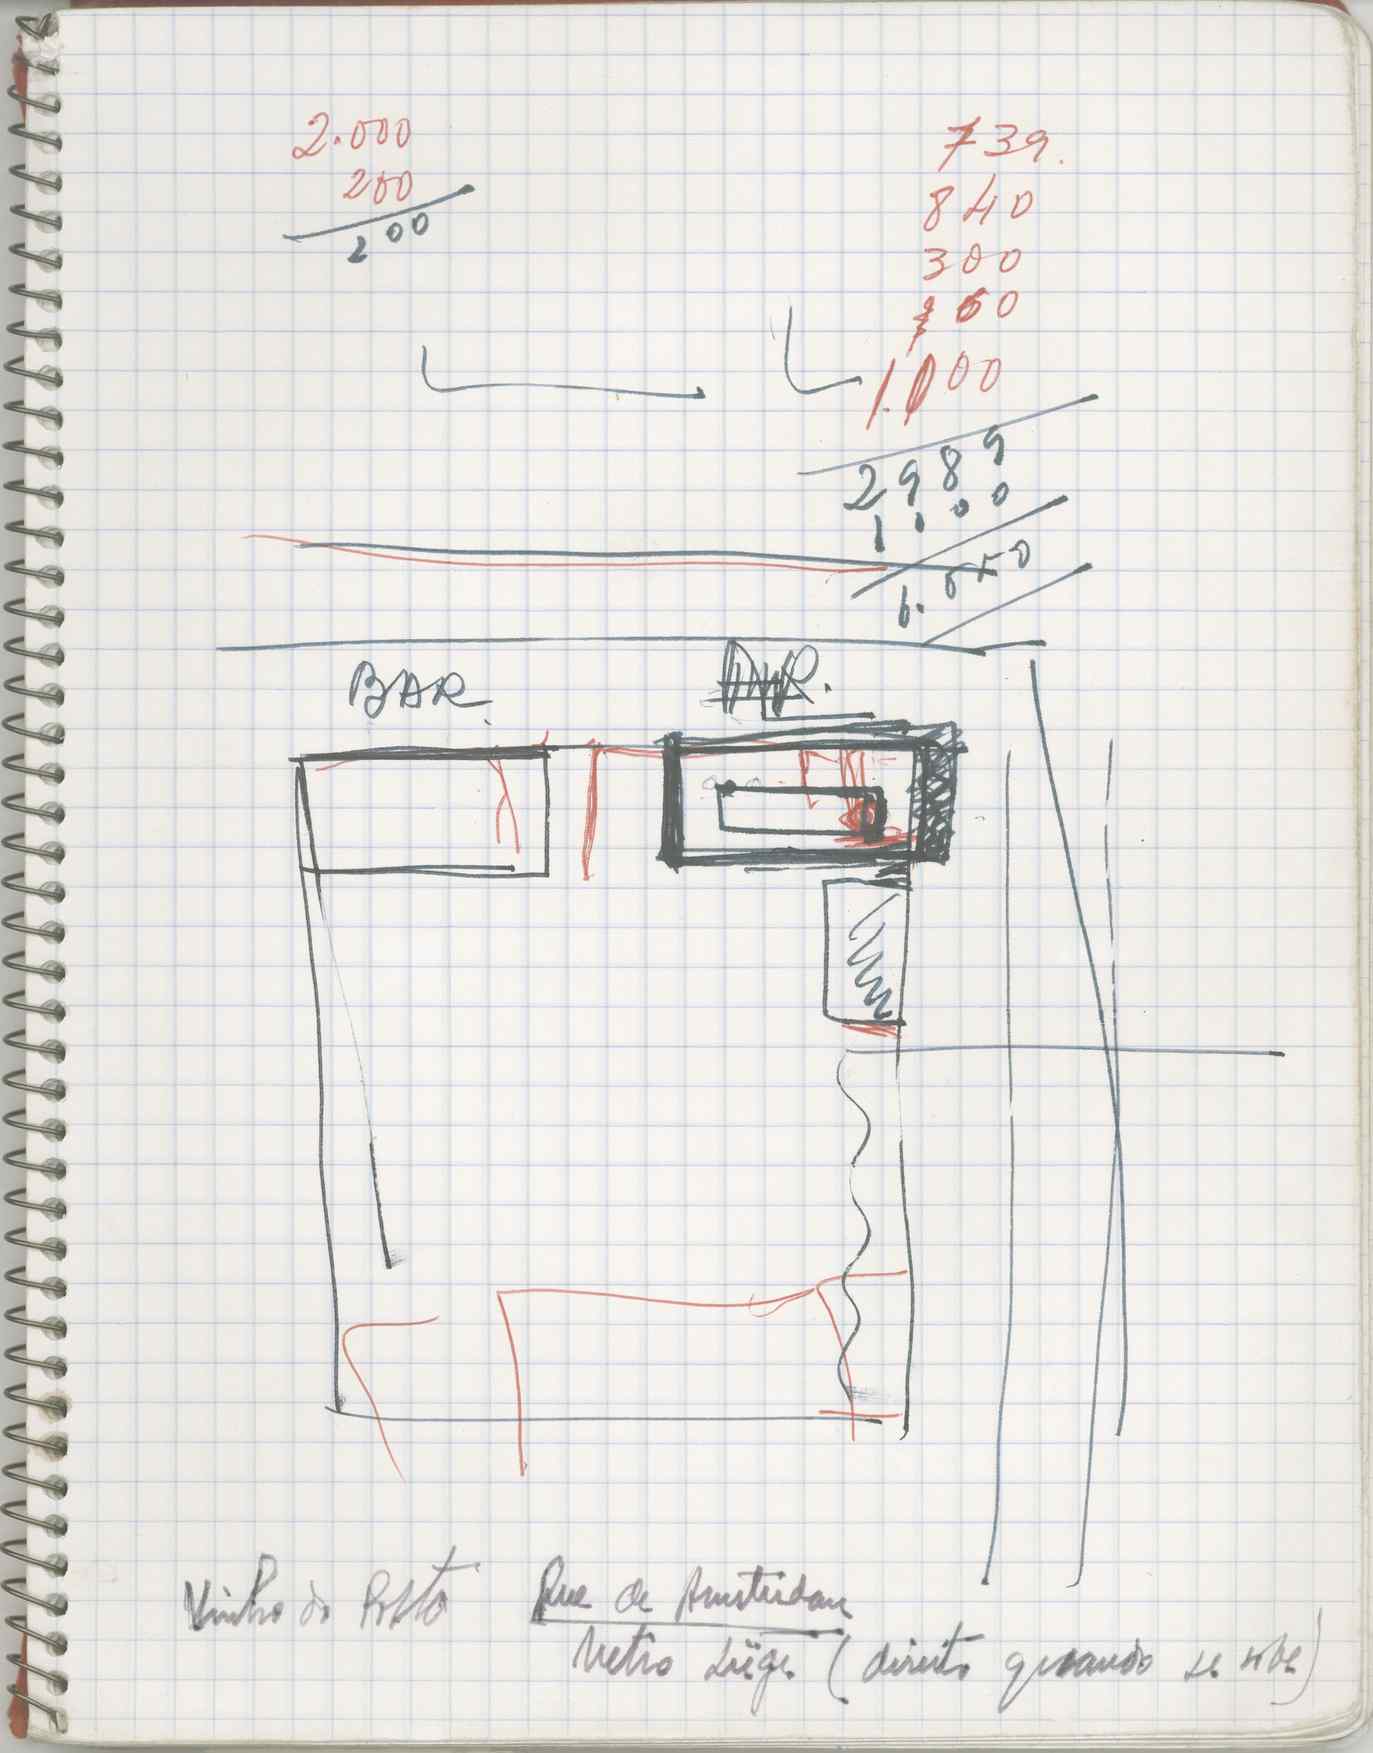 2.000
200
200
739.
840
300
1.000
2989
1000
BAR.
Vinho do Porto Rue de Amsterdam
Metro Liège (direito quando se sobe)